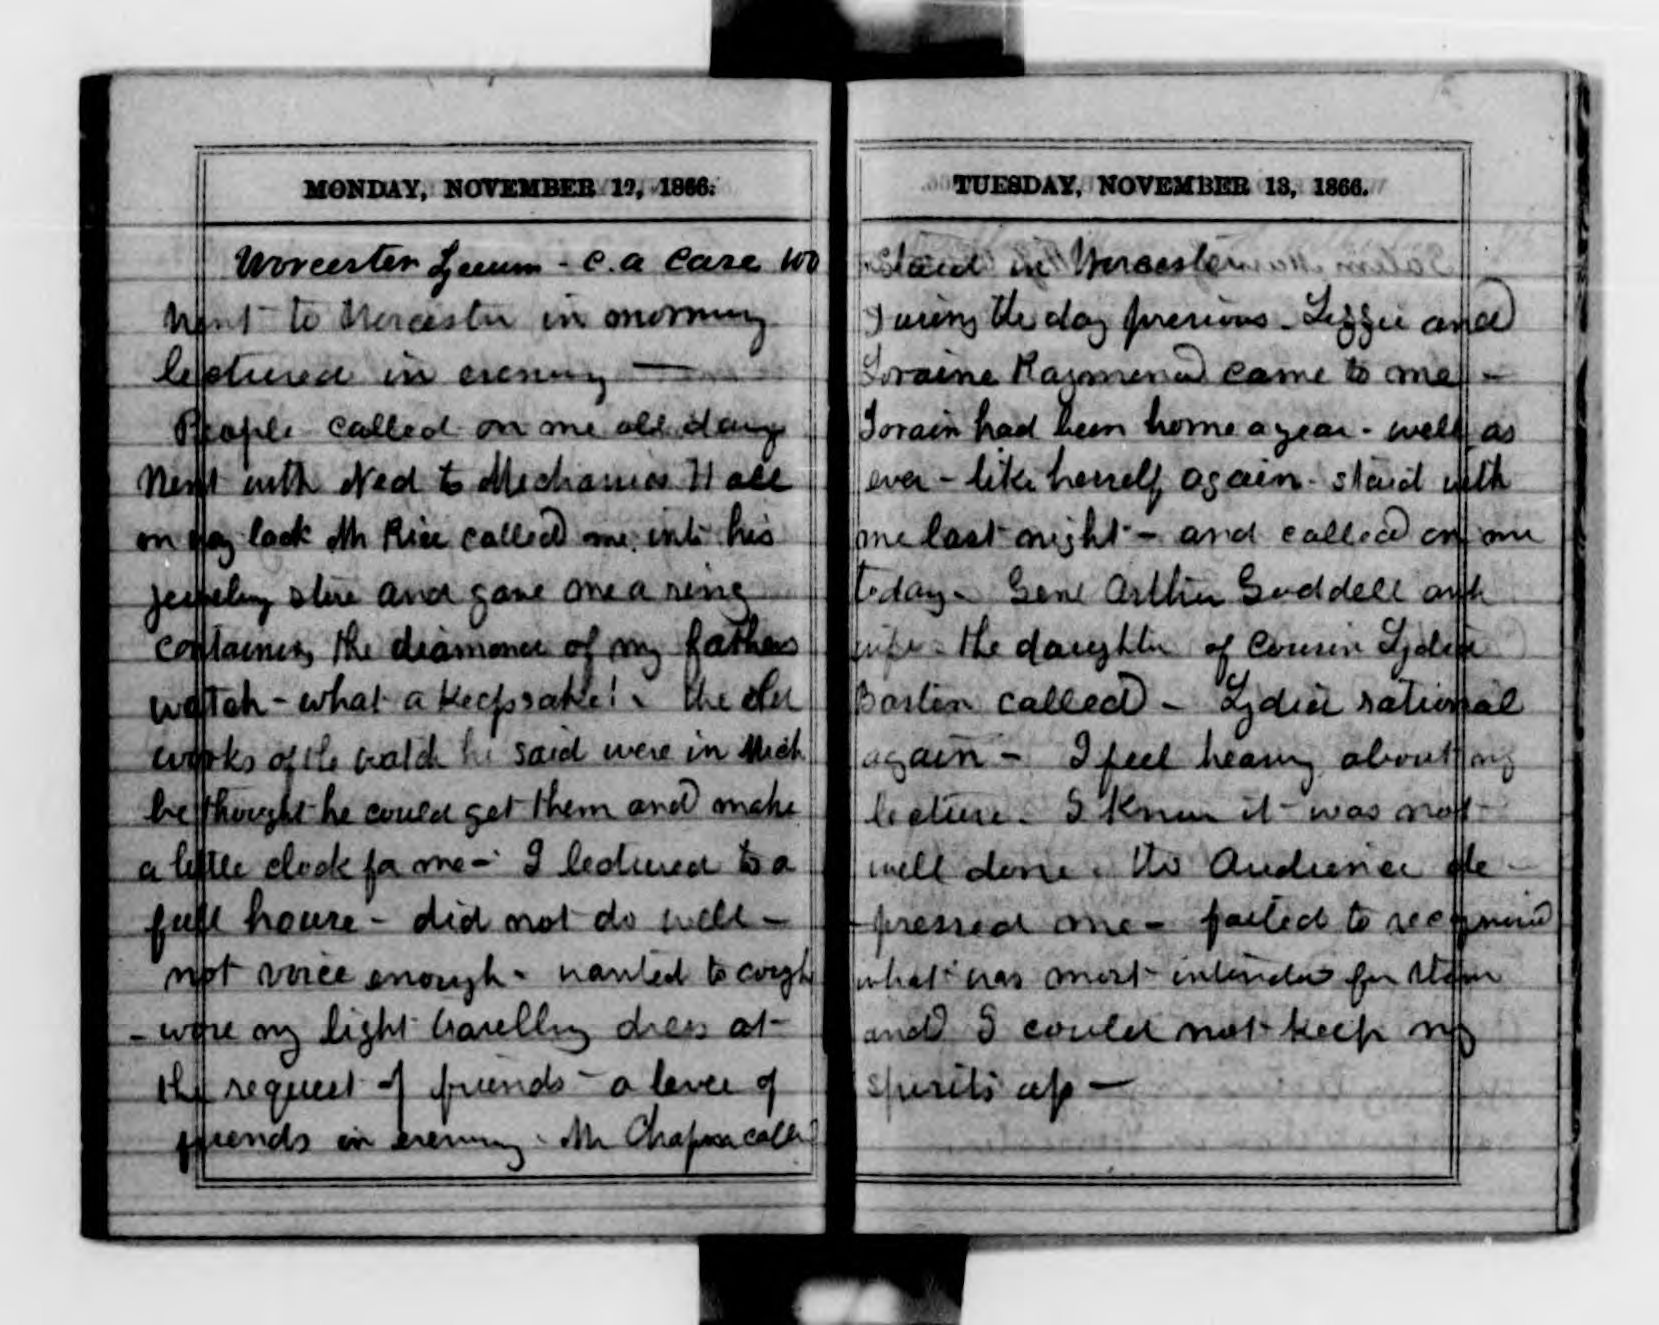 MONDAY, NOVEMBER 12, 1866.
Worcester Lyceum - C. A Case 100
Went to Worcester in morning
lectured in evening —
People called on me all day
Went with Ned to Mechanics Hall
on my back Mr Rice called me into his
jewelry store and gave me a ring
containing the diamond of my fathers
watch - what a keepsake! - the old
works of the watch he said were in Mich
he thought he could get them and make
a little clock for me - I lectured to a
full house - did not do well -
not voice enough - wanted to cough
- wore my light travelling dress at
the request of friends - a levee of
friends in evening - Mr Chapin called
TUESDAY, NOVEMBER 13, 1866.
Staid in Worcester
During the day previous - Lizzie and
Loraine Raymond came to me -
Lorain had been home a year - well as
ever - like herself again - staid with
me last night - and called on me
today - Genl Arthur Goddell and
wife - the daughter of Cousin Lydia
called - Lydia rational
again - I feel heavy about my
lecture. I knew it was not
well done. the Audience de-
-pressed me - failed to recognize
what was most intended for them
and I could not keep my
spirits up —